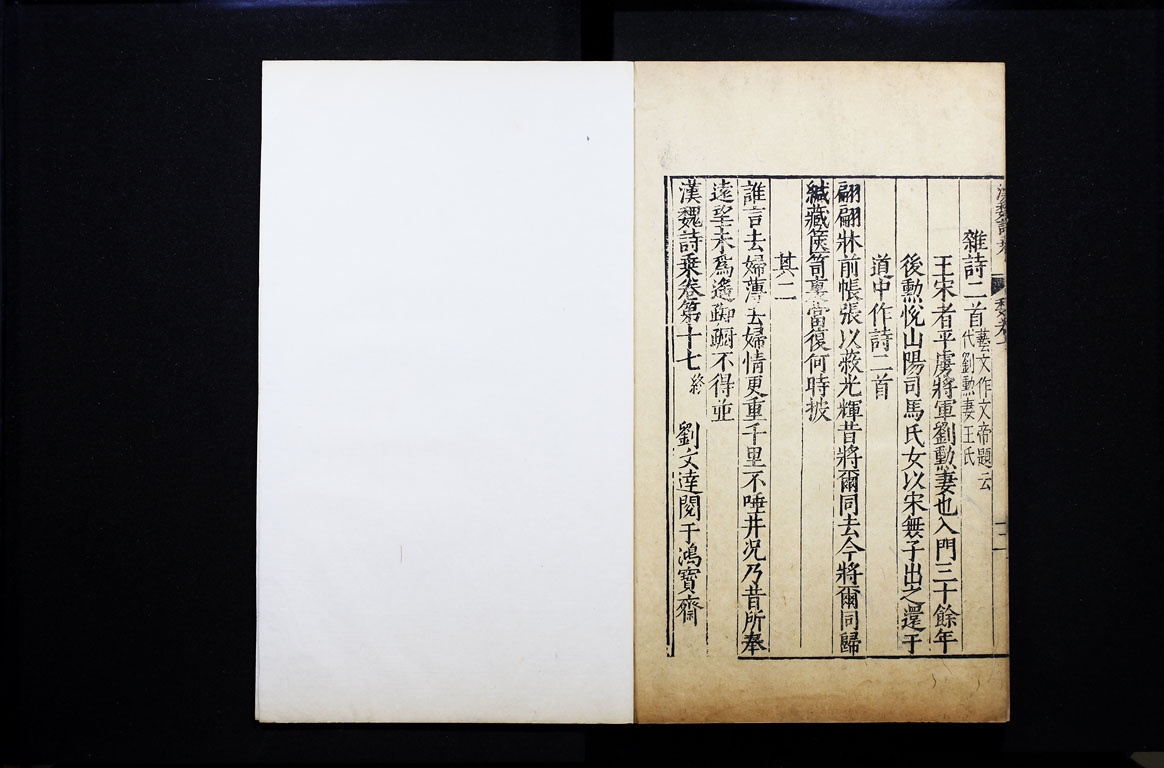 雜詩二首藝文作文帝題云代劉勲妻王氏
王宋者平虜將軍劉勲妻也入門三十餘年
後勲悅山陽司馬氏女以宋無子出之還于
道中作詩二首
翩翩牀前帳張以蔽光輝昔將爾同去今將爾同歸
緘藏篋笥裏當復何時披
其二
誰言去婦薄去婦情更重千里不唾井况乃昔所奉
遠望未爲遙踟躕不得並
漢魏詩乘卷第十七終 劉文達閱于鴻寶齋